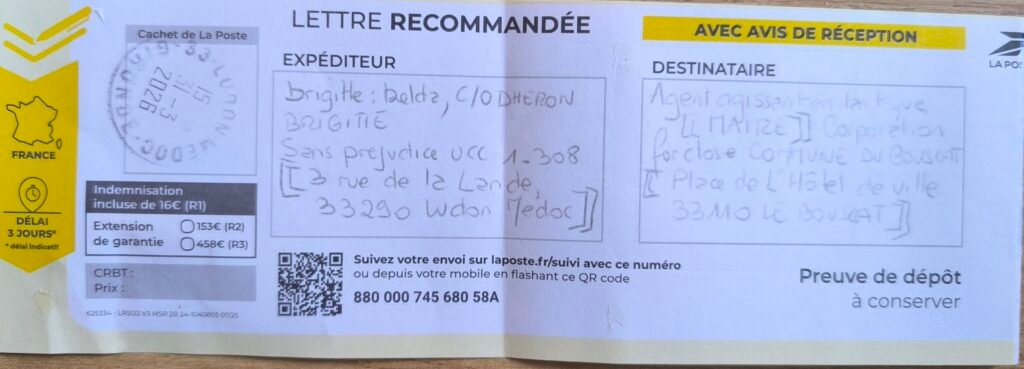 LETTRE RECOMMANDÉE
AVEC AVIS DE RÉCEPTION
LA POS
Cachet de La Poste
33-LUDON MEDOC
GIRONDE
15
31-3
2026
FRANCE
DÉLAI
3 JOURS*
* délai indicatif
Indemnisation
incluse de 16€ (R1)
Extension
de garantie
153€ (R2)
458€ (R3)
CRBT :
Prix :
625334 - LRSD2 V3 MSR 2B 24-1040805 07/25
EXPÉDITEUR
brigitte : belda, C/O DHERON
BRIGITTE
Sans préjudice UCC 1-308
[[ 3 rue de la Lande,
33290 Ludon Médoc]]
DESTINATAIRE
Agent agissant en tant que
[[ MAIRE]] Corporation
forclose COMMUNE DU BOUSCAT
[[ Place de L'Hôtel de ville
33110 LE BOUSCAT]]
Suivez votre envoi sur laposte.fr/suivi avec ce numéro
ou depuis votre mobile en flashant ce QR code
880 000 745 680 58A
Preuve de dépôt
à conserver